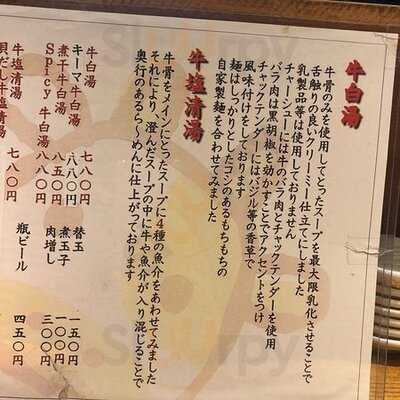 牛白湯
牛骨のみを使用してとったスープを最大限乳化させることで
舌触りの良いクリーミー仕立てにしました
乳製品等は使用しておりません
チャーシューには牛のバラ肉とチャックテンダーを使用
バラ肉は黒胡椒を効かすことでアクセントをつけ
チャックテンダーにはバジル等の香草で
風味付けをしております
麺はしっかりとしたコシのあるもちもちの
自家製麺を合わせてみました
牛塩清湯
牛骨をメインにとったスープに4種の魚介をあわせてみました
それにより、澄んだスープの中に牛や魚介が入り混じることで
奥行のあるら〜めんに仕上がっております
牛白湯 七八〇円
キーマ牛白湯 八八〇円
煮干牛白湯 八五〇円
Spicy牛白湯 八八〇円
牛塩清湯 七八〇円
貝だし牛塩清湯
替玉 一五〇円
煮玉子 一〇〇円
肉増し 三〇〇円
瓶ビール 四五〇